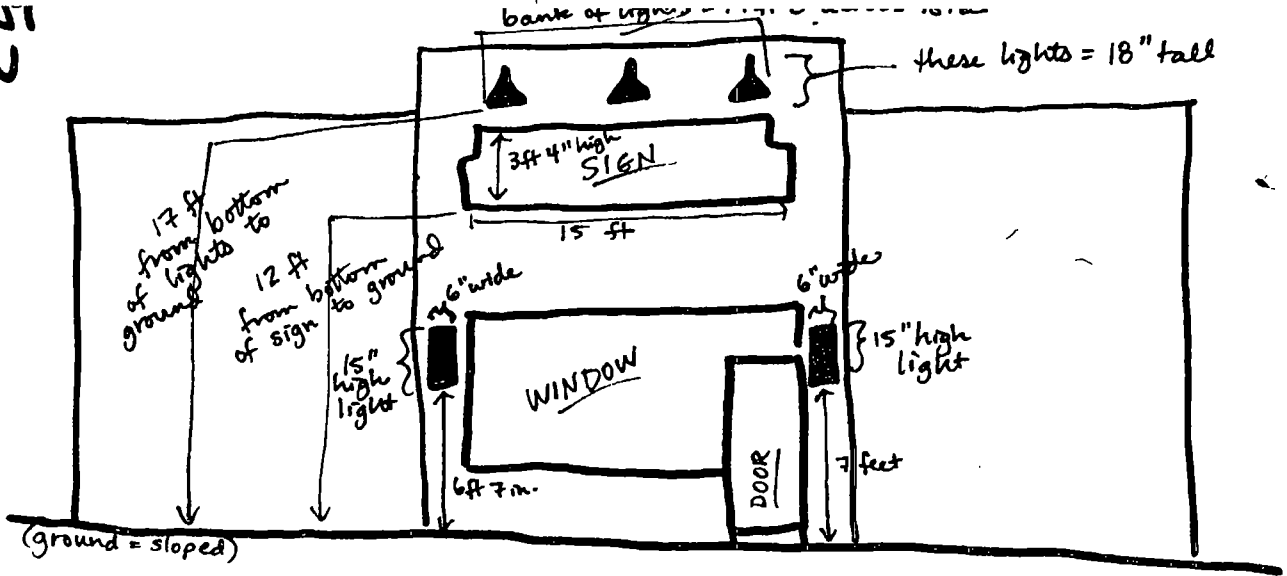 bank of lights
these lights = 18" tall
3ft 4" high
SIGN
15 ft
17 ft
from bottom
of lights to
ground
12 ft
from bottom
of sign to ground
6" wide
6" wide
15"
high
light
15" high
light
WINDOW
DOOR
6ft 7 in.
7 feet
(ground = sloped)